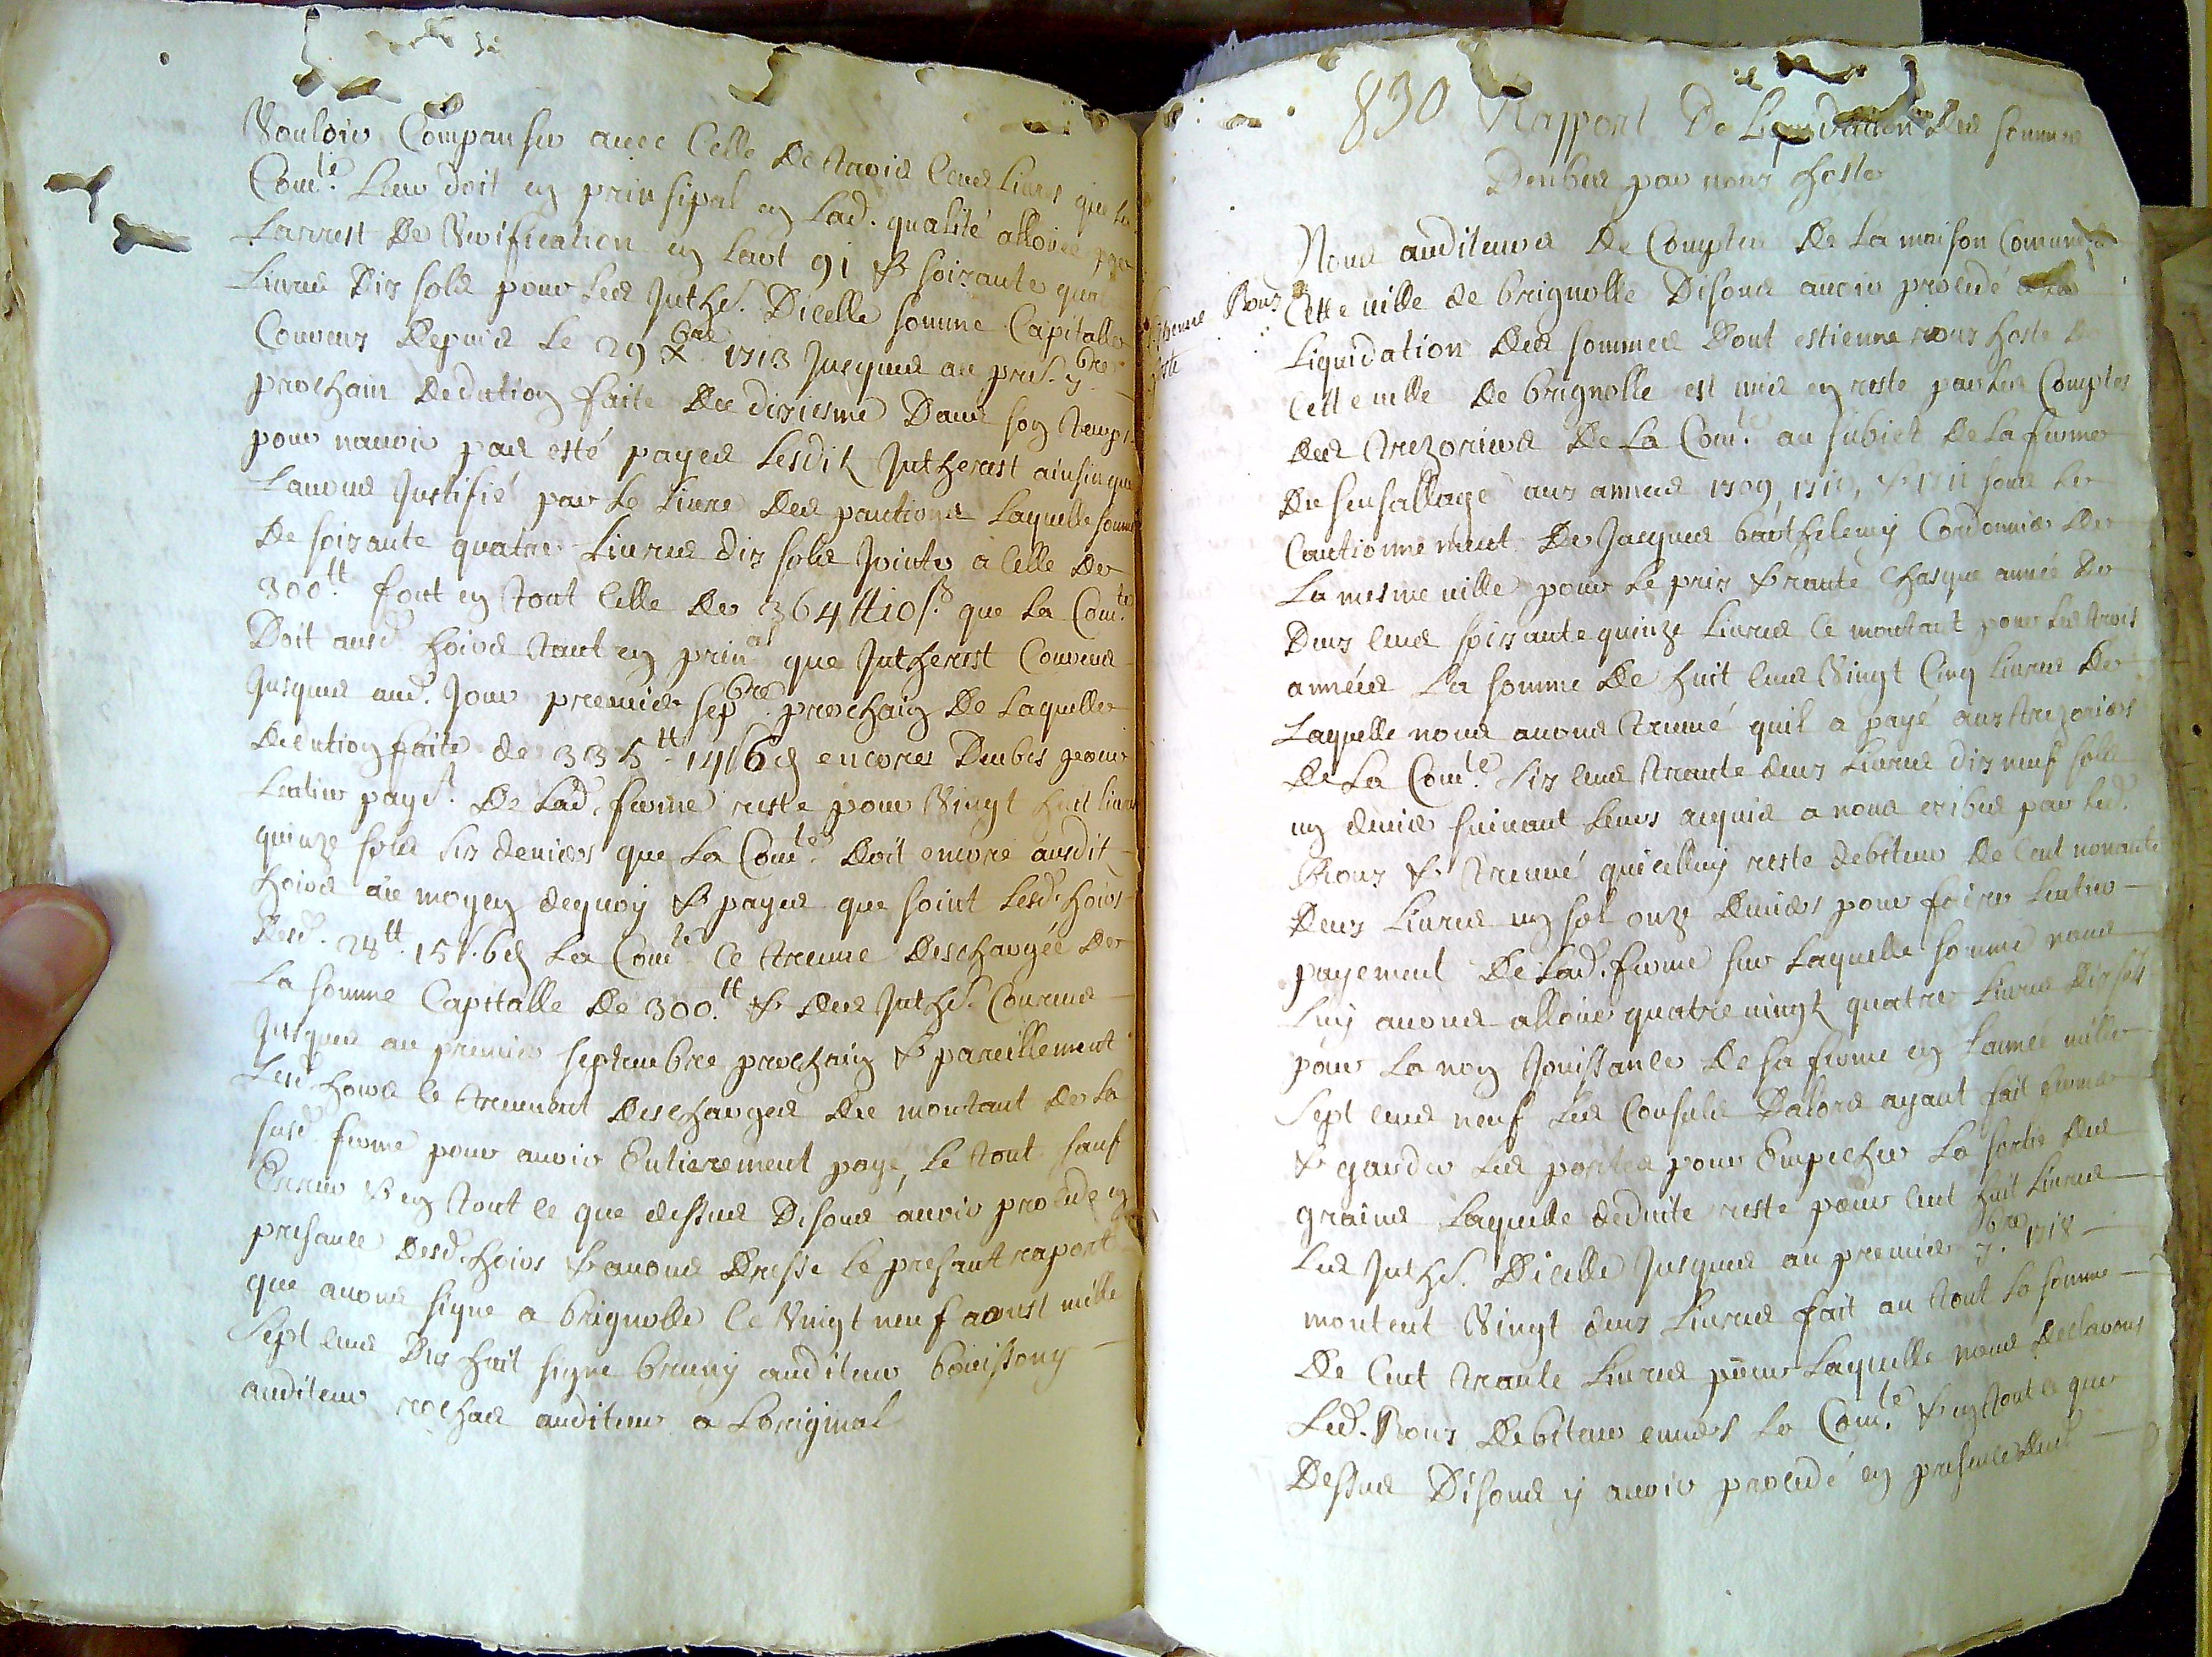 Vouloir Companser avec Celle de trois Cens Livres que la
Com.te Leur doit en prinsipal en Lad. qualité allouée par
Larrest de Veriffication en Lart 91 & soixante quatre
Livres dix sols pour les Inthe.s dicelle somme Capitalle
Coureus depuis Le 29 Xbre 1713 Jusques au pre.r 7bre
prochain dedution faite du dixiesme dans son temps
pour navoir pas esté payes Lesdit Intherest ainsin que
Lavons Justifié par Le Livre des pantions Laquelle somme
de soixante quatre Livres dix sols Jointe a Celle de
300.tt font en tout Celle de 364 tt 10 s. que La Com.te
Doit ausd hoirs tant en prin.al que Intherest Coureus
Jusques aud. Jour premier sep.bre prochain de Laquelle
dedution faite de 335.tt 14 s 6 d encores deubes pour
Lentier paye.t de Lad. ferme reste pour Vingt huit livres
quinze sols six deniers que La Com.te doit encore ausdit
hoirs au moyen dequoy & payes que soint Lesd. hoirs
desd. 28.tt 15 s. 6 d La Com.te Ce treuve deschargée de
La somme Capitalle de 300.tt & des Inthe.s Coureus
Jusques au premier septembre prochain & pareillement
Lesd hoirs Ce treuvent descharges du montant de la
susd. ferme pour avoir Entierement payé, Le tout sauf
Erreur & en tout ce que dessus Disons avoir procede en
presance desd. hoirs & avons dresse Le presant raport
que avons signe a brignolle Ce Vingt neuf aoust mille
Sept cens dix huit signe bruny auditeur bouissony
auditeur rochas auditeur a Loriginal
830 Rapport De Liquidation des sommes
Deubes par roux hoste
Estienne Roux
hoste
Nous auditeurs de Comptes de La maison Commune
Cette ville de brignolle Disons avoir procedé
Liquidation des sommes dont estienne roux hoste de
Cette ville de brignolle est mis en reste par Les Comptes
des trezoriers de La Com.te au subiet de La ferme
du sensallage aux annees 1709, 1710, & 1711 sous Le
Cautionnement de Jacques barthelemy Cordonnier de
La mesme ville pour Le prix & rante Chasque année de
Deux Cens soixante quinze Livres Ce montant pour Les trois
années La somme de huit Cens Vingt Cinq Livres de
Laquelle nous avons treuvé quil a payé aux trezoriers
de La Com.te six Cens trante deux Livres dix neuf sols
un denier suivant Leurs acquis a nous exibes par Led.
Roux & treuvé quicelluy reste debiteur de Cent nonante
Deux Livres un sol onze deniers pour faire Lentier
payement de Lad. ferme sur Laquelle somme nous
Luy avons alloué quatre vingt quatre Livres dix sols
pour La non Jouissance de sa ferme en Lannee mille
Sept Cens neuf Les Consuls dalors ayant fait fermer
& garder Les portes pour Empecher La sortie des
grains Laquelle deduite reste pour Cent huit Livres
Les Inthe.s dicelle Jusques au premier 7.bre 1718
montent Vingt deux Livres fait au tout La somme
de Cent trante Livres pour Laquelle nous declarons
Led. Roux debiteur envers La Com.te & en tout ce que
Dessus Disons y avoir procedé en presence dud